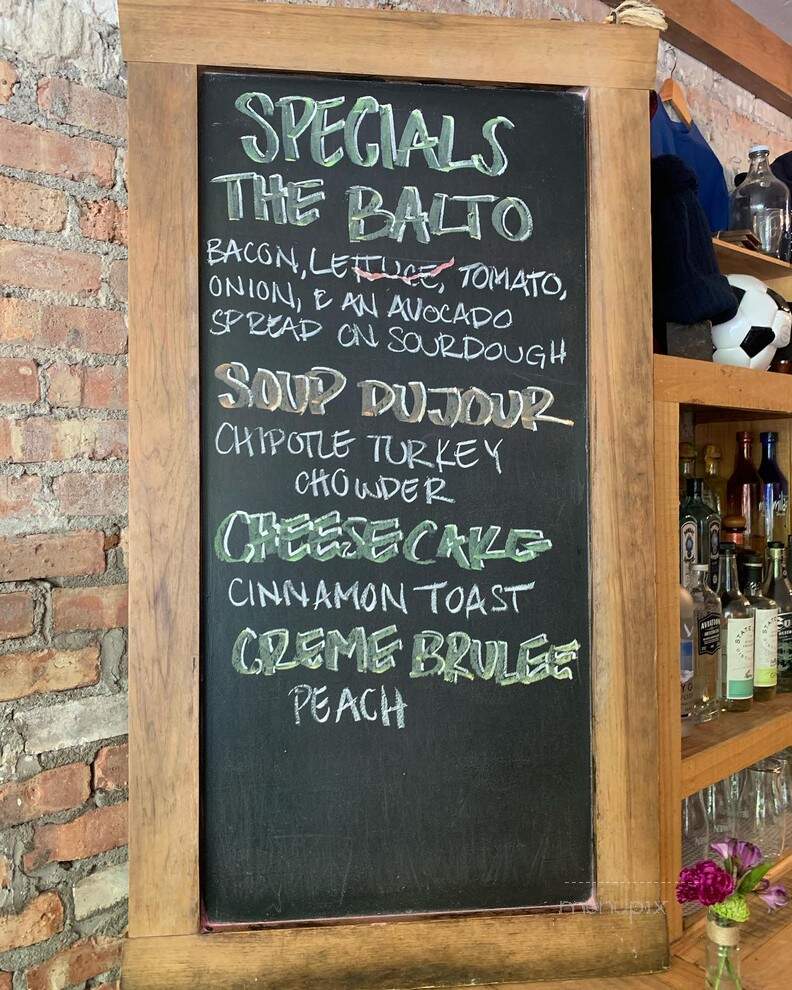 SPECIALS
THE BALTO
BACON, LETTUCE, TOMATO,
ONION, & AN AVOCADO
SPREAD ON SOURDOUGH
SOUP DUJOUR
CHIPOTLE TURKEY
CHOWDER
CHEESECAKE
CINNAMON TOAST
CREME BRULEE
PEACH
AVIATION
STATE
menupix